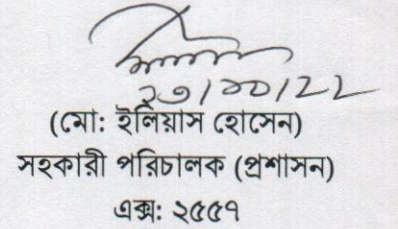 ২৩/১০/২২
(মো: ইলিয়াস হোসেন)
সহকারী পরিচালক (প্রশাসন)
এক্স: ২৫৫৭